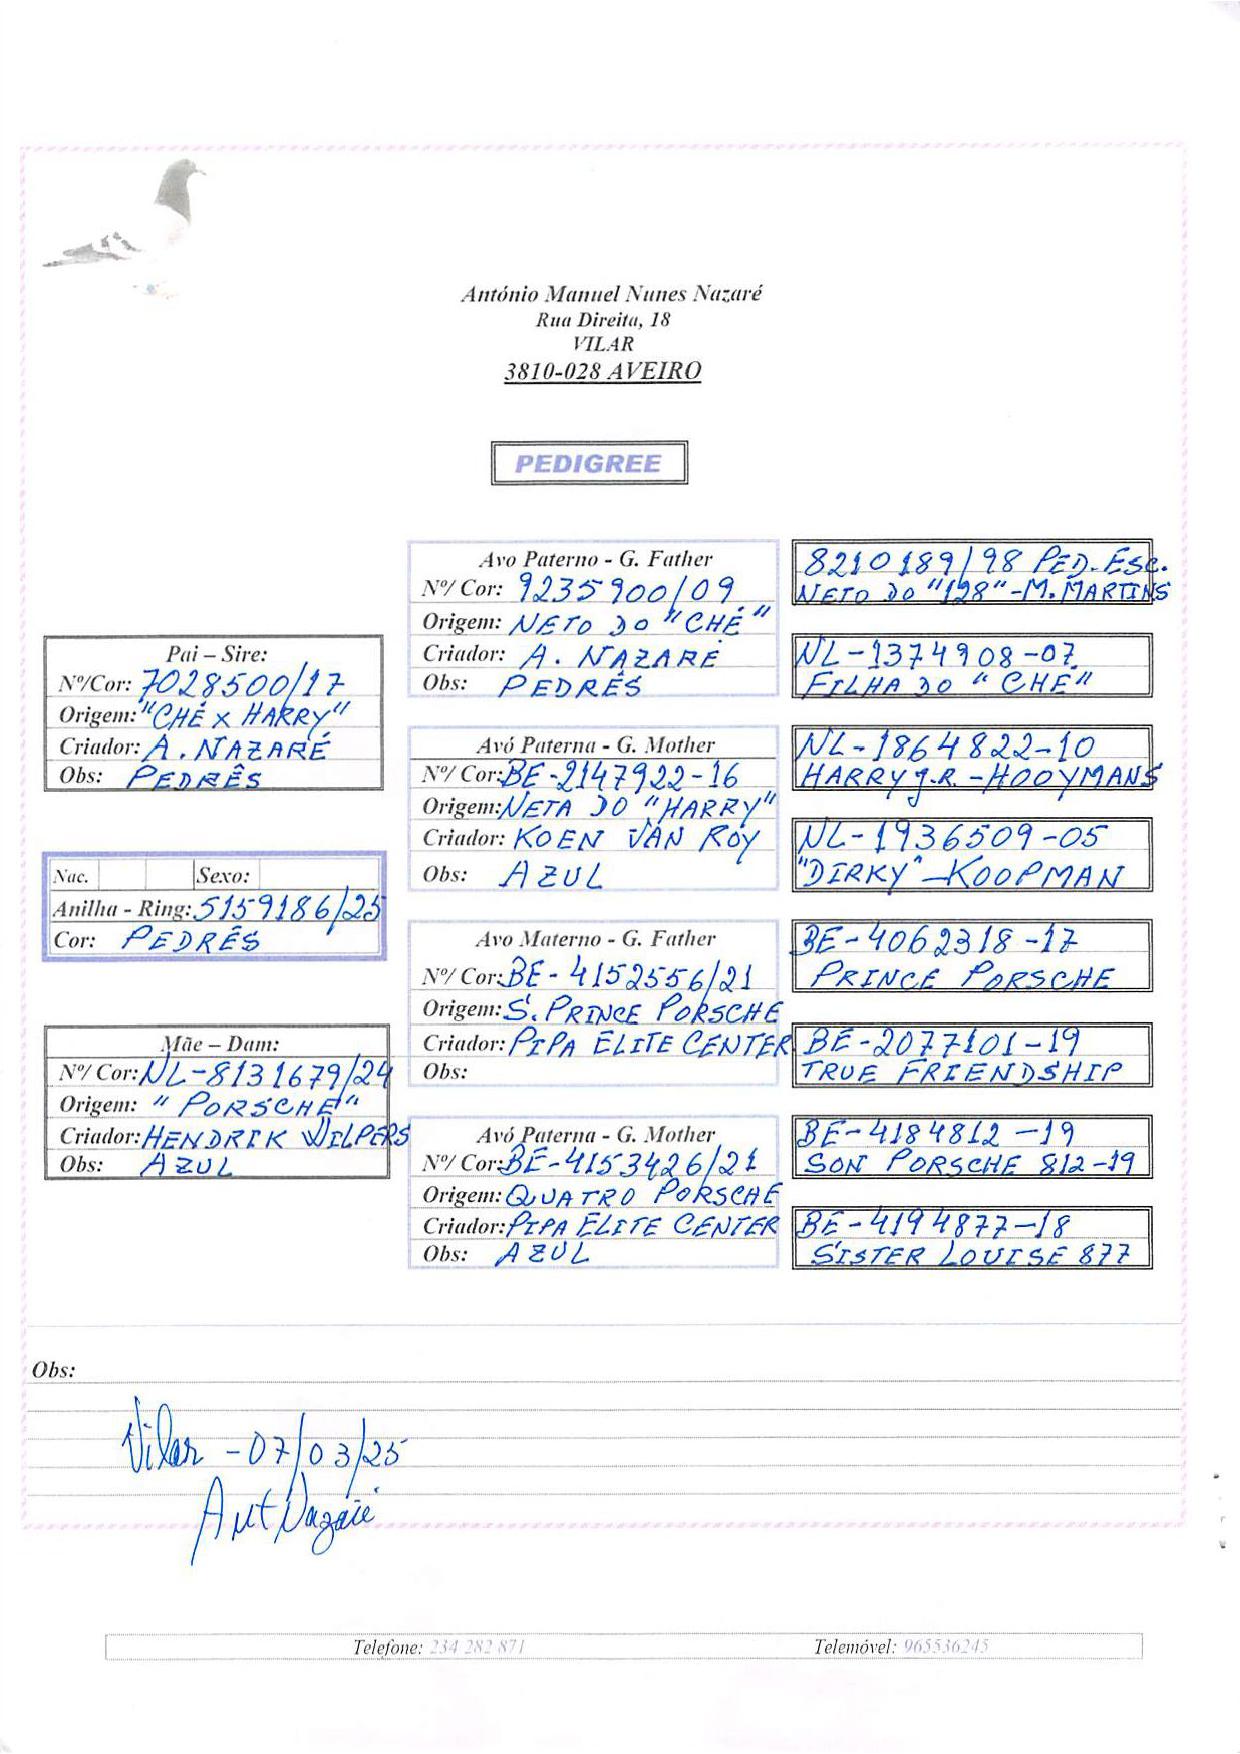 António Manuel Nunes Nazaré
Rua Direita, 18
VILAR
3810-028 AVEIRO
PEDIGREE
Pai – Sire:
Nº/Cor: 7028500/17
Origem: "CHÉ X HARRY"
Criador: A. NAZARÉ
Obs: PEDRÊS
Nac. Sexo:
Anilha - Ring: 5159186/25
Cor: PEDRÊS
Mãe – Dam:
Nº/ Cor: NL-8131679/24
Origem: "PORSCHE"
Criador: HENDRIK WILPERS
Obs: AZUL
Avo Paterno - G. Father
Nº/ Cor: 9235900/09
Origem: NETO DO "CHÉ"
Criador: A. NAZARÉ
Obs: PEDRÊS
Avó Paterna - G. Mother
Nº/ Cor: BE-2147922-16
Origem: NETA DO "HARRY"
Criador: KOEN VAN ROY
Obs: AZUL
Avo Materno - G. Father
Nº/ Cor: BE-4152556/21
Origem: S. PRINCE PORSCHE
Criador: PIPA ELITE CENTER
Obs:
Avó Paterna - G. Mother
Nº/ Cor: BE-4153426/21
Origem: QUATRO PORSCHE
Criador: PIPA ELITE CENTER
Obs: AZUL
8210189/98 PED. ESC.
NETO DO "128" - M. MARTINS
NL-1374908-07
FILHA DO "CHÉ"
NL-1864822-10
HARRY J.R. - HOOYMANS
NL-1936509-05
"DIRKY" - KOOPMAN
BE-4062318-17
PRINCE PORSCHE
BE-2077101-19
TRUE FRIENDSHIP
BE-4184812-19
SON PORSCHE 812-19
BE-4194877-18
SISTER LOUISE 877
Obs:
Vilar - 07/03/25
Ant Nazaré
Telefone: 234 282 871 Telemóvel: 965536245